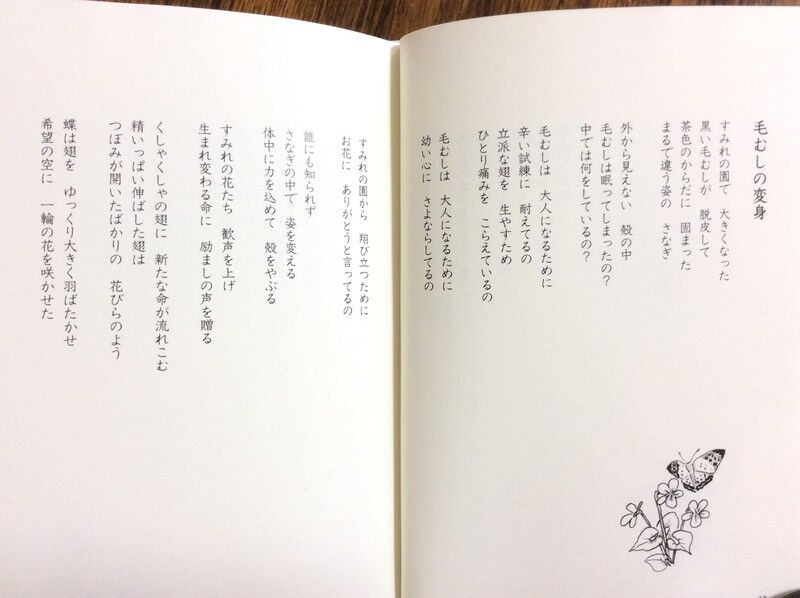 毛むしの変身
すみれの園で　大きくなった
黒い毛むしが　脱皮して
茶色のからだに　固まった
まるで違う姿の　さなぎ
外から見えない　殻の中
毛むしは眠ってしまったの？
中では何をしているの？
毛むしは　大人になるために
辛い試練に　耐えてるの
立派な翅を　生やすため
ひとり痛みを　こらえているの
毛むしは　大人になるために
幼い心に　さよならしてるの
すみれの園から　翔び立つために
お花に　ありがとうと言ってるの
誰にも知られず
さなぎの中で　姿を変える
体中に力を込めて　殻をやぶる
すみれの花たち　歓声を上げ
生まれ変わる命に　励ましの声を贈る
くしゃくしゃの翅に　新たな命が流れこむ
精いっぱい伸ばした翅は
つぼみが開いたばかりの　花びらのよう
蝶は翅を　ゆっくり大きく羽ばたかせ
希望の空に　一輪の花を咲かせた